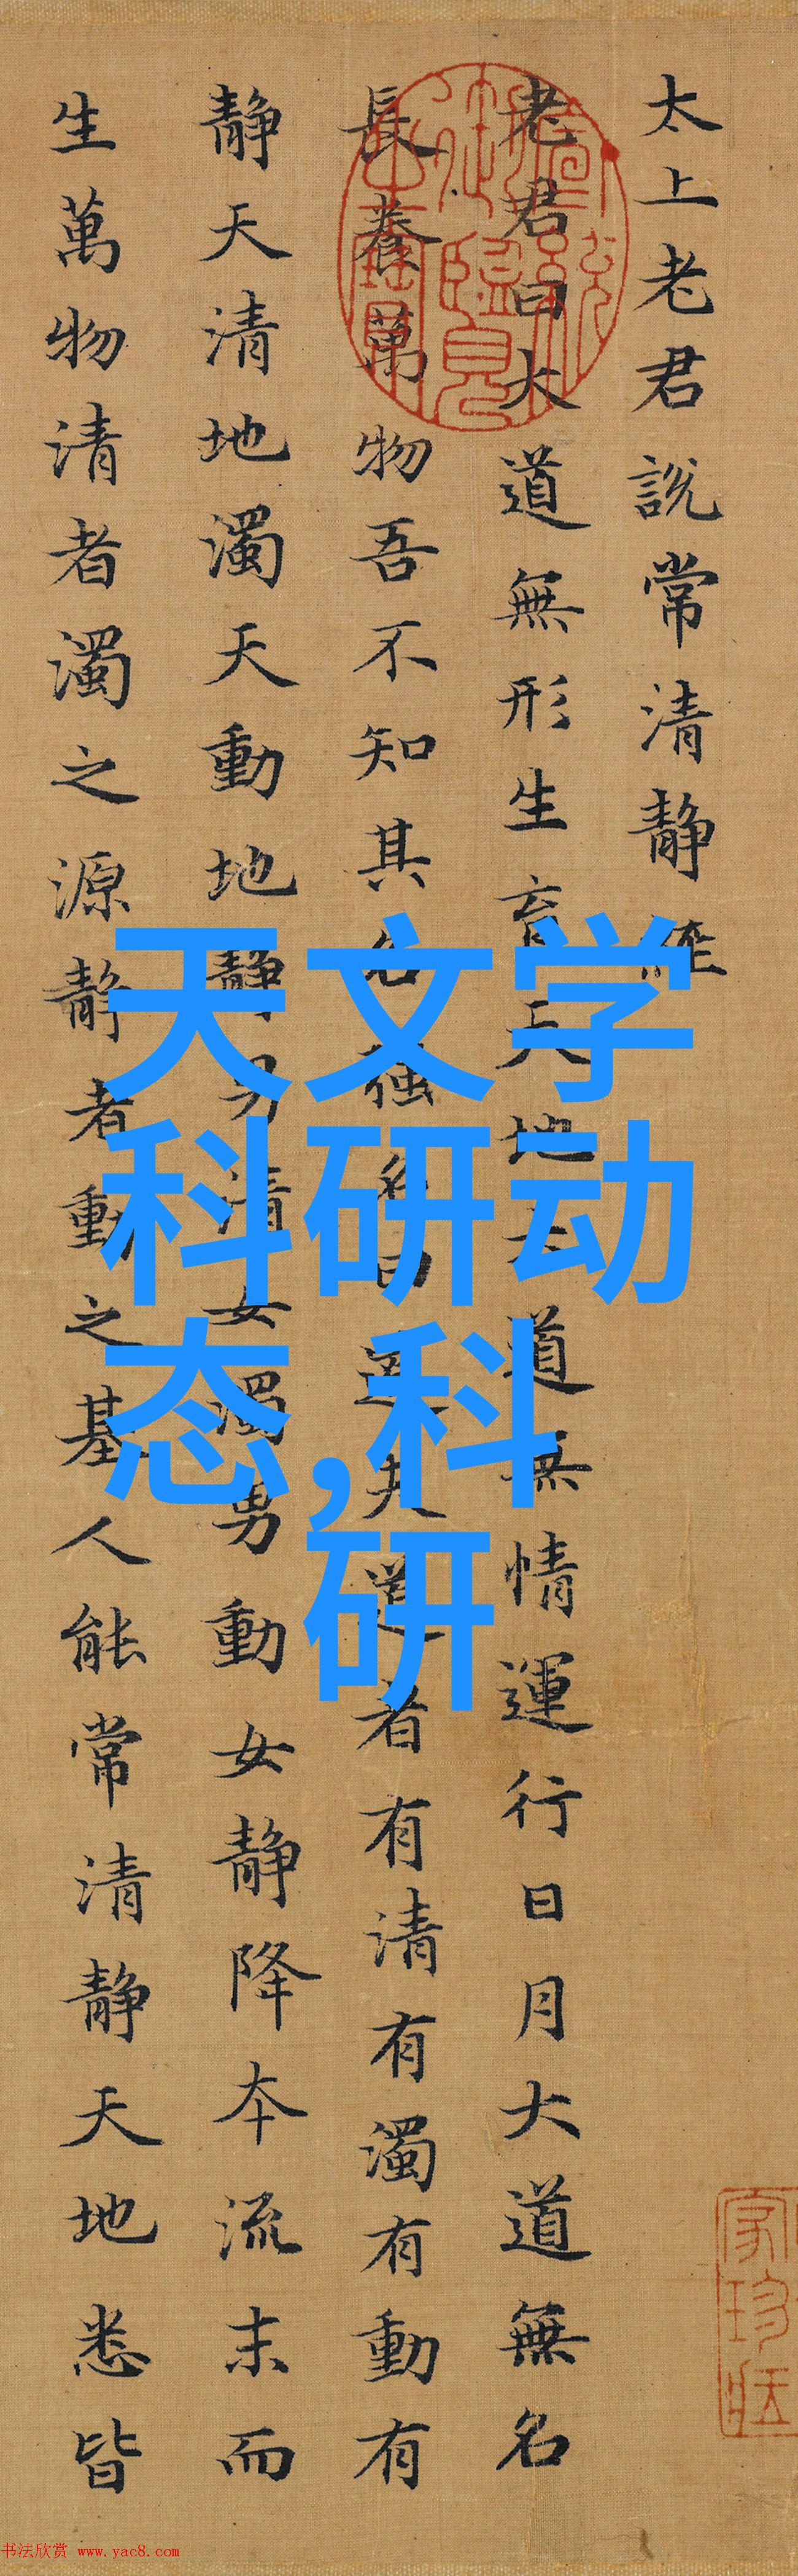 太上老君說常清靜經
老君曰大道無形生育天地大道無情運行日月大道無名
長養萬物吾不知其名強名曰道夫道者有清有濁有動有
靜天清地濁天動地靜男清女濁男動女靜降本流末而
生萬物清者濁之源靜者動之基人能常清靜天地悉皆
天文学
科研动
态,科
研
书法欣赏 www.yac8.com